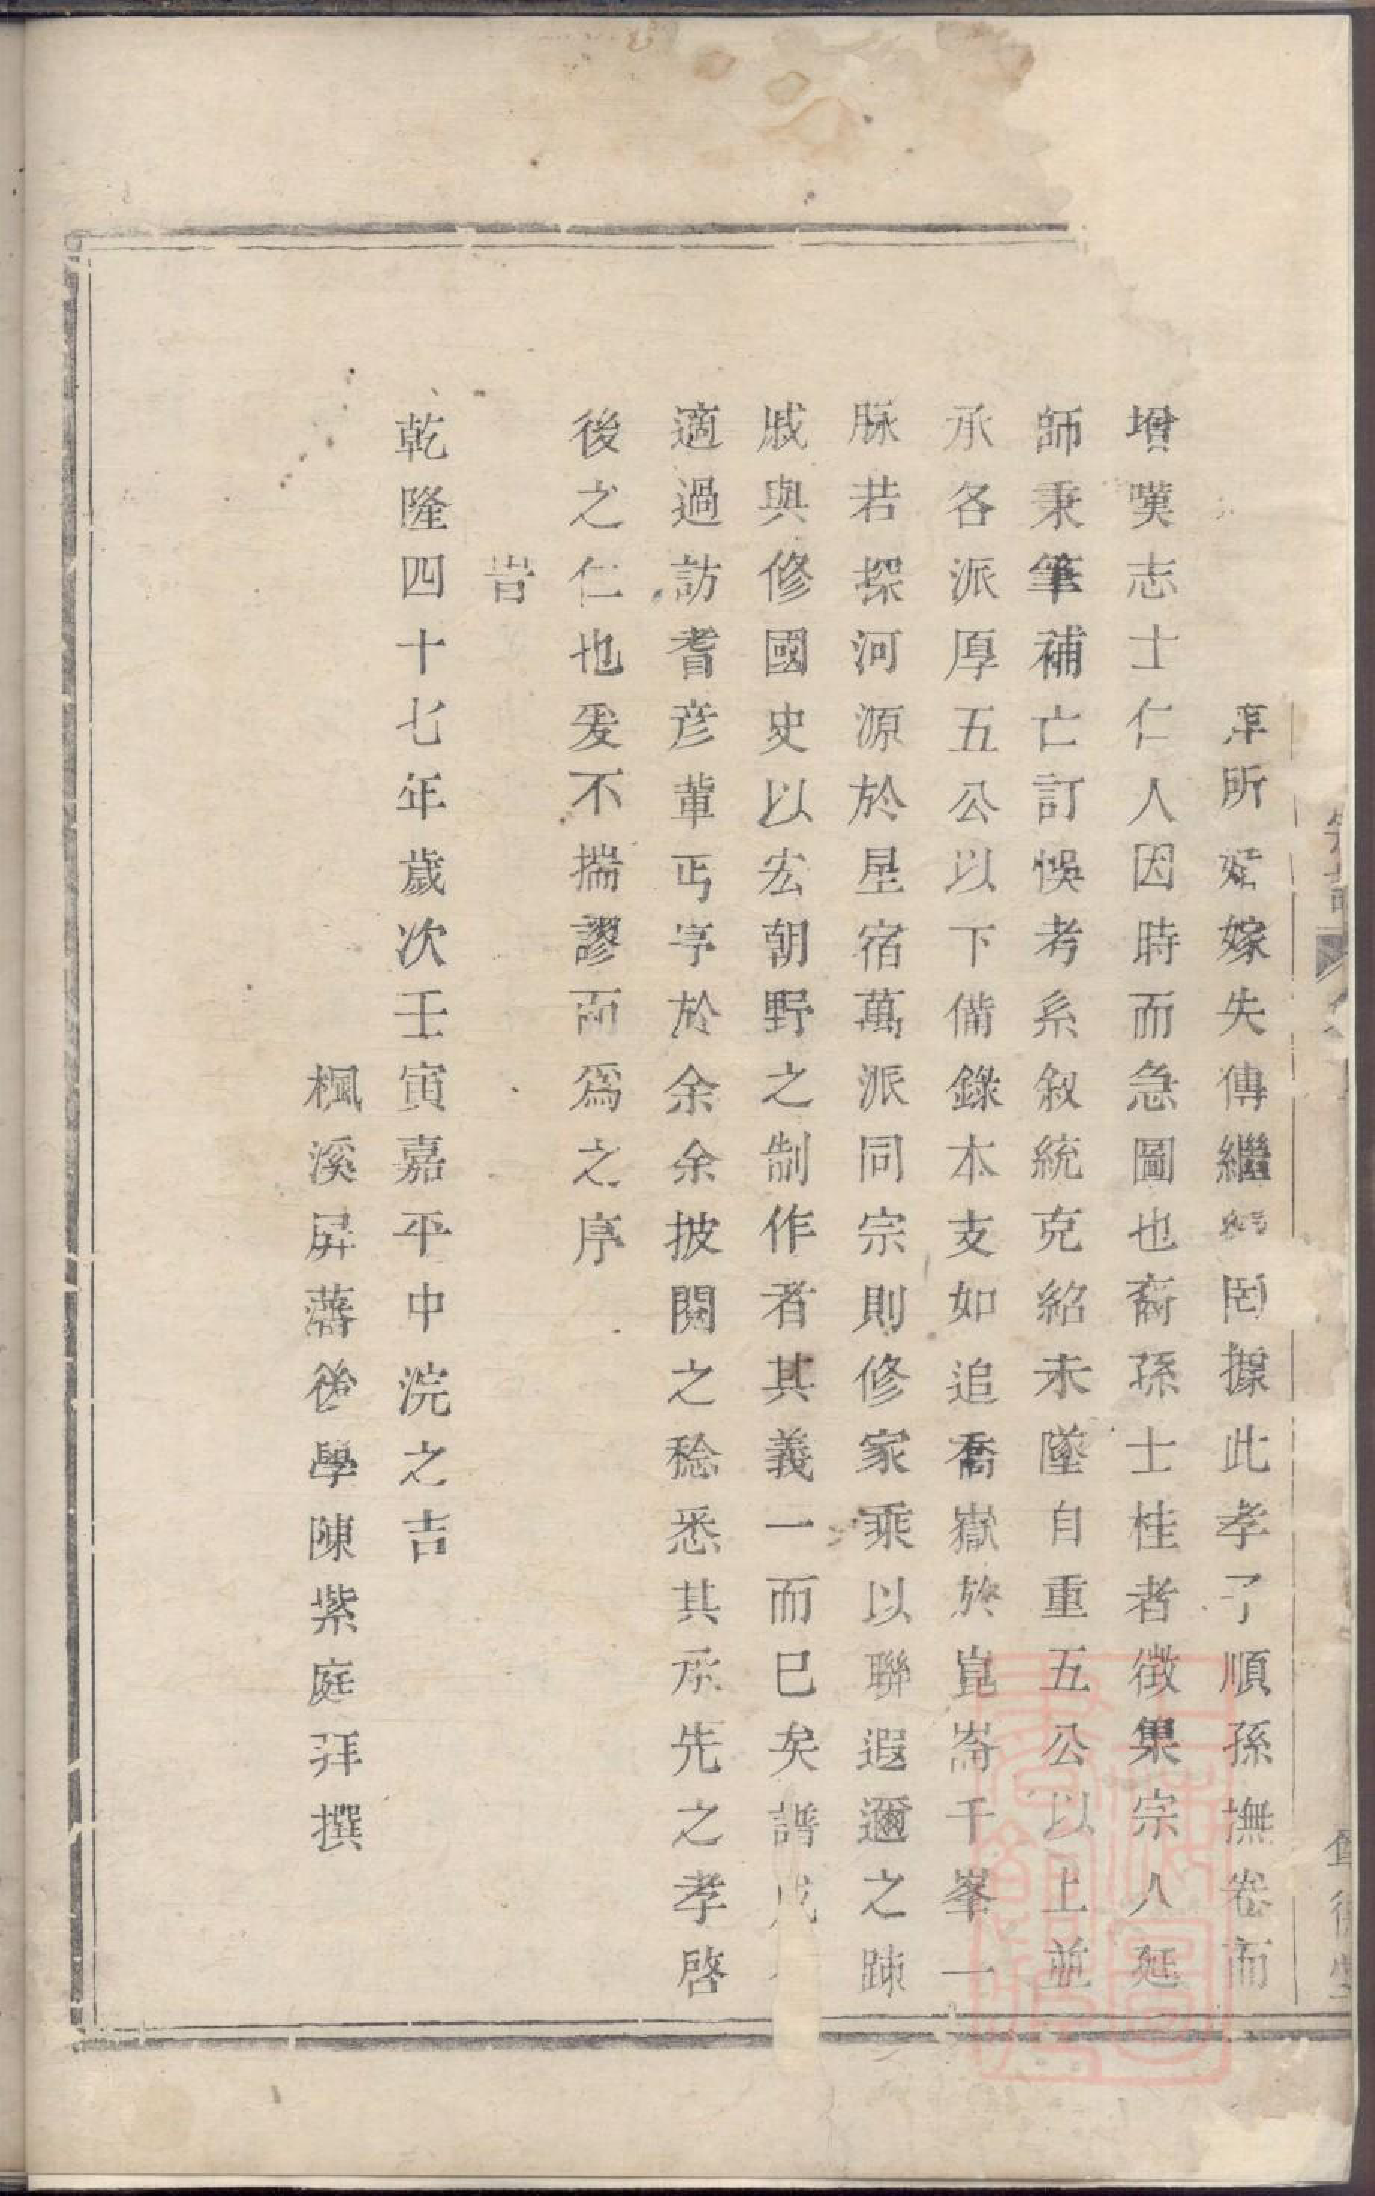 所嫁失傳繼罔據此孝子順孫撫卷而
增嘆志士仁人因時而急圖也裔孫士桂者徵集宗人延
師秉筆補亡訂悞考系敘統克紹未墜自重五公以上並
承各派厚五公以下備錄本支如追喬嶽於崑崙千峯一
脉若探河源於星宿萬派同宗則修家乘以聯遐邇之踈
戚與修國史以宏朝野之制作者其義一而已矣譜成
適過訪耆彦輩丐字於余余披閱之稔悉其承先之孝啓
後之仁也爰不揣謬而為之序
旹
乾隆四十七年歲次壬寅嘉平中浣之吉
楓溪屏藩後學陳紫庭拜撰